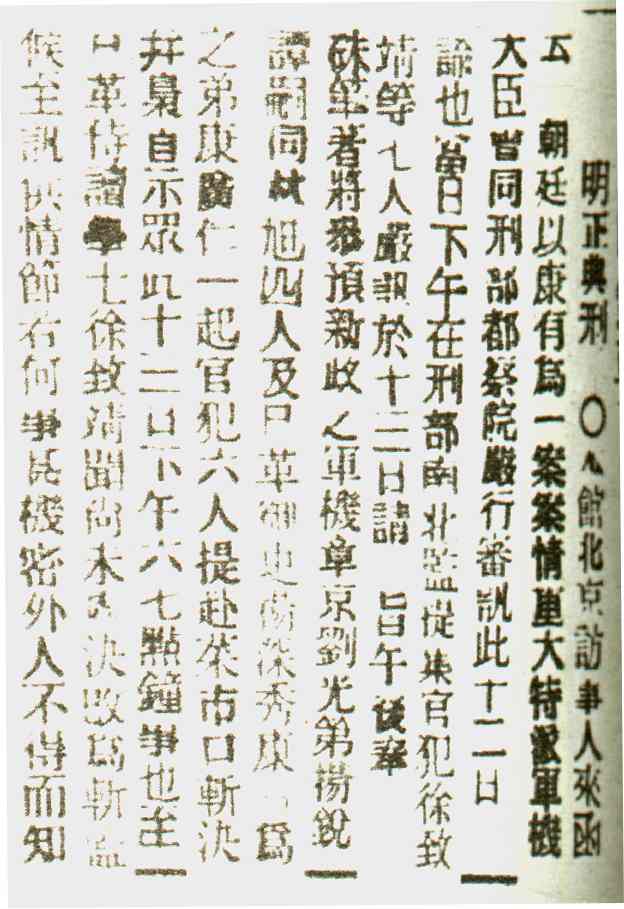 明正典刑 〇 館北京訪事人來函
云 朝廷以康有爲一案案情重大特派軍機
大臣會同刑部都察院嚴行審訊此十二日
諭也當日下午在刑部南北監提集官犯徐致
靖等七人嚴訊於十三日請 旨午後奉
硃筆著將參預新政之軍機章京劉光第楊銳
譚嗣同林旭四人及已革御史楊深秀康 爲
之弟康廣仁一起官犯六人提赴菜市口斬決
并梟首示眾此十三日下午六七點鐘事也至
已革侍讀學士徐致靖聞尚未 決改爲斬監
候至訊供情節若何事屬機密外人不得而知